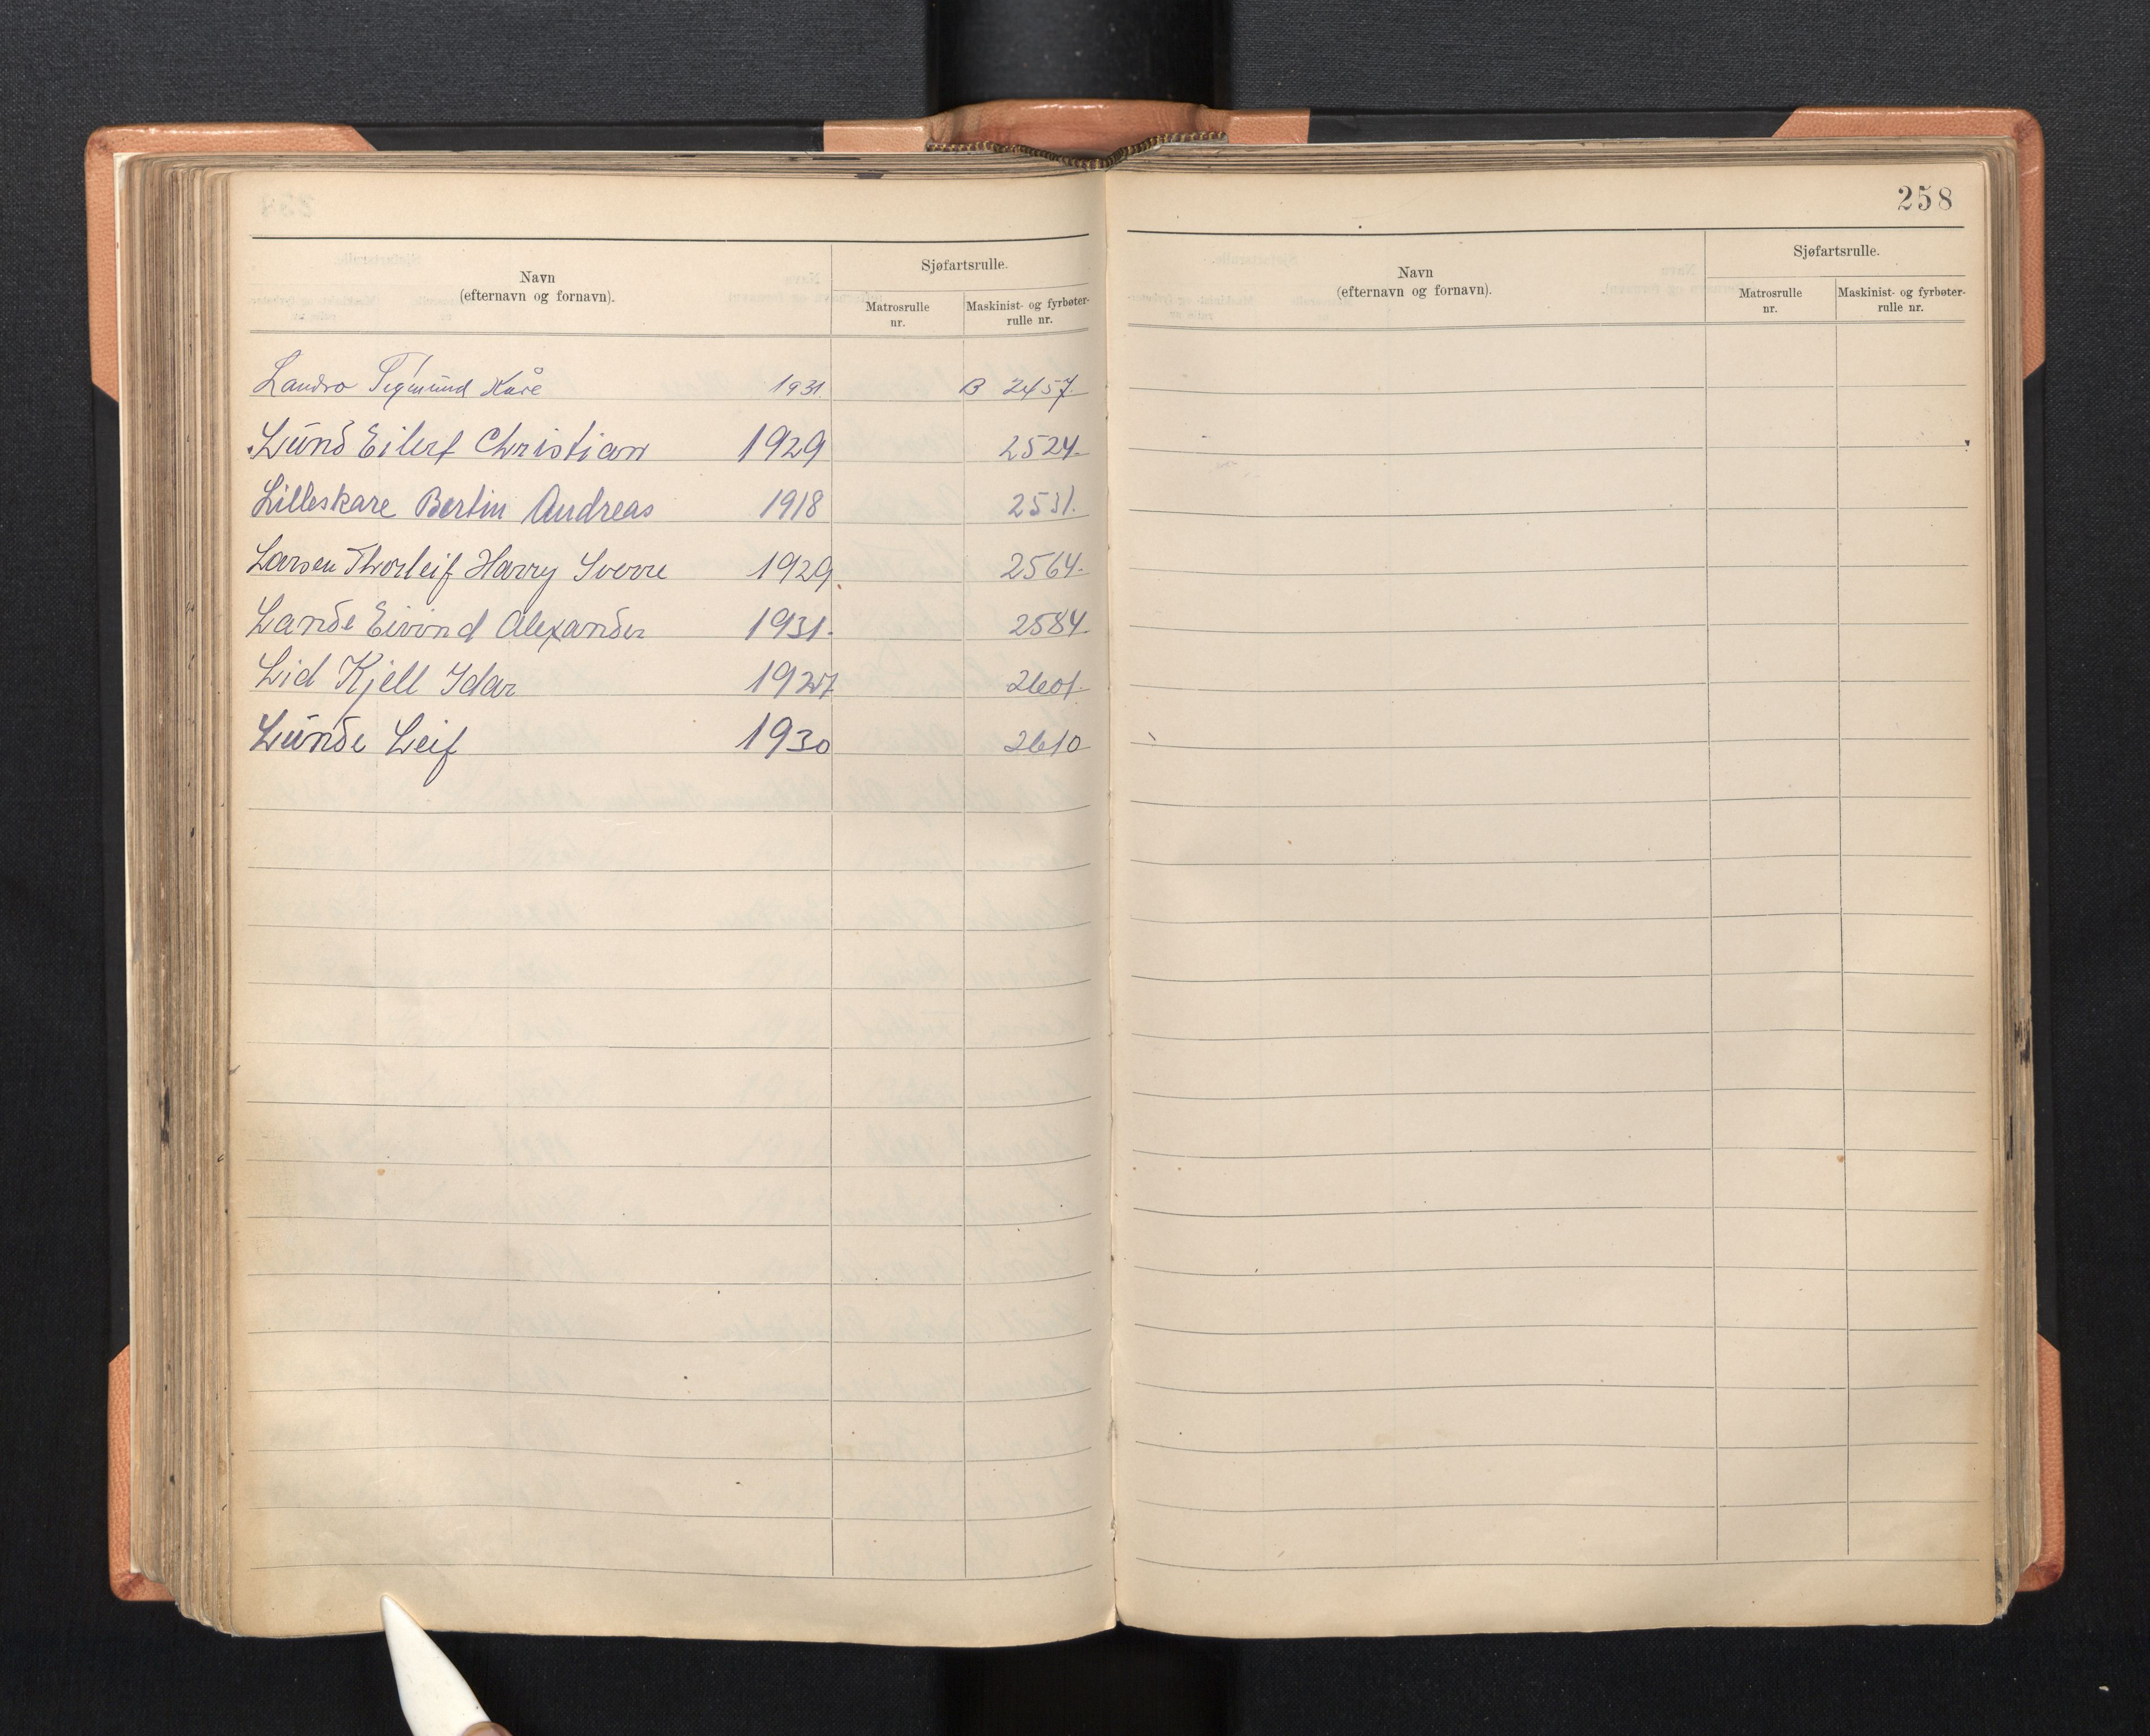 Navn
(efternavn og fornavn).
Sjøfartsrulle.
Matrosrulle
nr.
Maskinist- og fyrbøter-
rulle nr.
Landro Sigmund Kåre 1931 B 2457.
Lund Eilert Christian 1929 2524.
Lilleskare Bertin Andreas 1918 2531.
Larsen Thorleif Harry Sverre 1929. 2564.
Lande Eivind Alexander 1931. 2584.
Lid Kjell Idar 1927 2601.
Lunde Leif 1930 2610
258
Navn
(efternavn og fornavn).
Sjøfartsrulle.
Matrosrulle
nr.
Maskinist- og fyrbøter-
rulle nr.